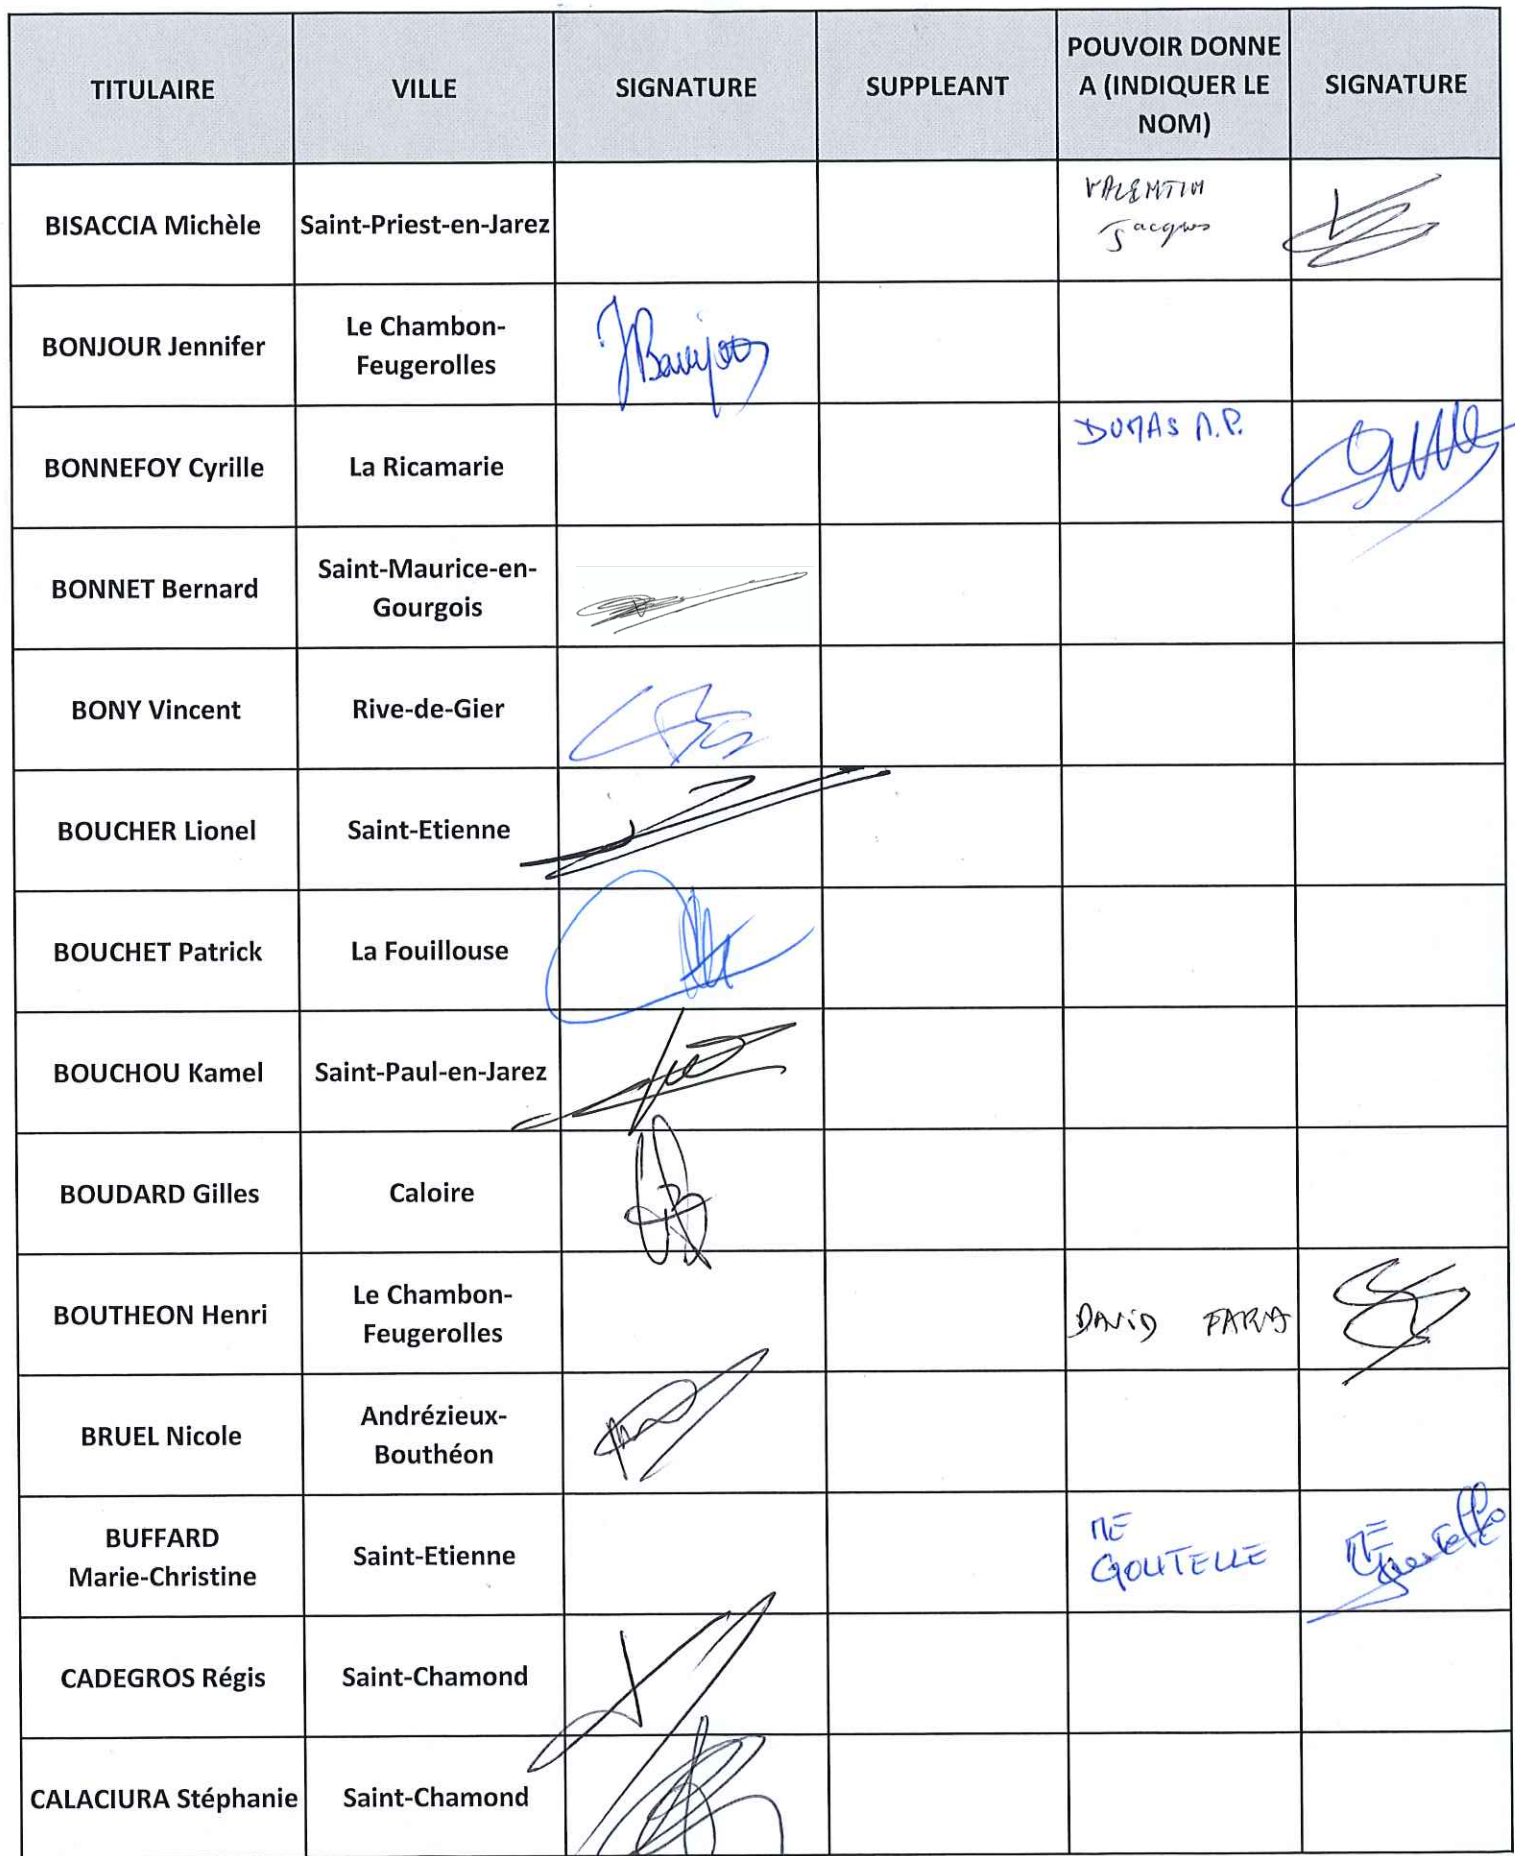 TITULAIRE VILLE SIGNATURE SUPPLEANT POUVOIR DONNE A (INDIQUER LE NOM) SIGNATURE
BISACCIA Michèle Saint-Priest-en-Jarez VALENTIN Jacques
BONJOUR Jennifer Le Chambon-Feugerolles JBonjour
BONNEFOY Cyrille La Ricamarie DUMAS M.P.
BONNET Bernard Saint-Maurice-en-Gourgois
BONY Vincent Rive-de-Gier
BOUCHER Lionel Saint-Etienne
BOUCHET Patrick La Fouillouse
BOUCHOU Kamel Saint-Paul-en-Jarez
BOUDARD Gilles Caloire
BOUTHEON Henri Le Chambon-Feugerolles DAVID FARA
BRUEL Nicole Andrézieux-Bouthéon
BUFFARD Marie-Christine Saint-Etienne ME GOUTELLE
CADEGROS Régis Saint-Chamond
CALACIURA Stéphanie Saint-Chamond